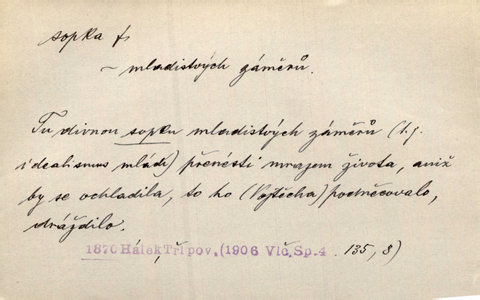 sopka f
~ mladistvých záměrů.
Tu divnou sopku mladistvých záměrů (t.j.
idealismus mládí) přenésti mrazem života, aniž
by se ochladila, to ho (Vojtěcha) podněcovalo,
dráždilo.
1870 Hálek Tři pov. (1906 Vlč. Sp. 4. 135, 8)